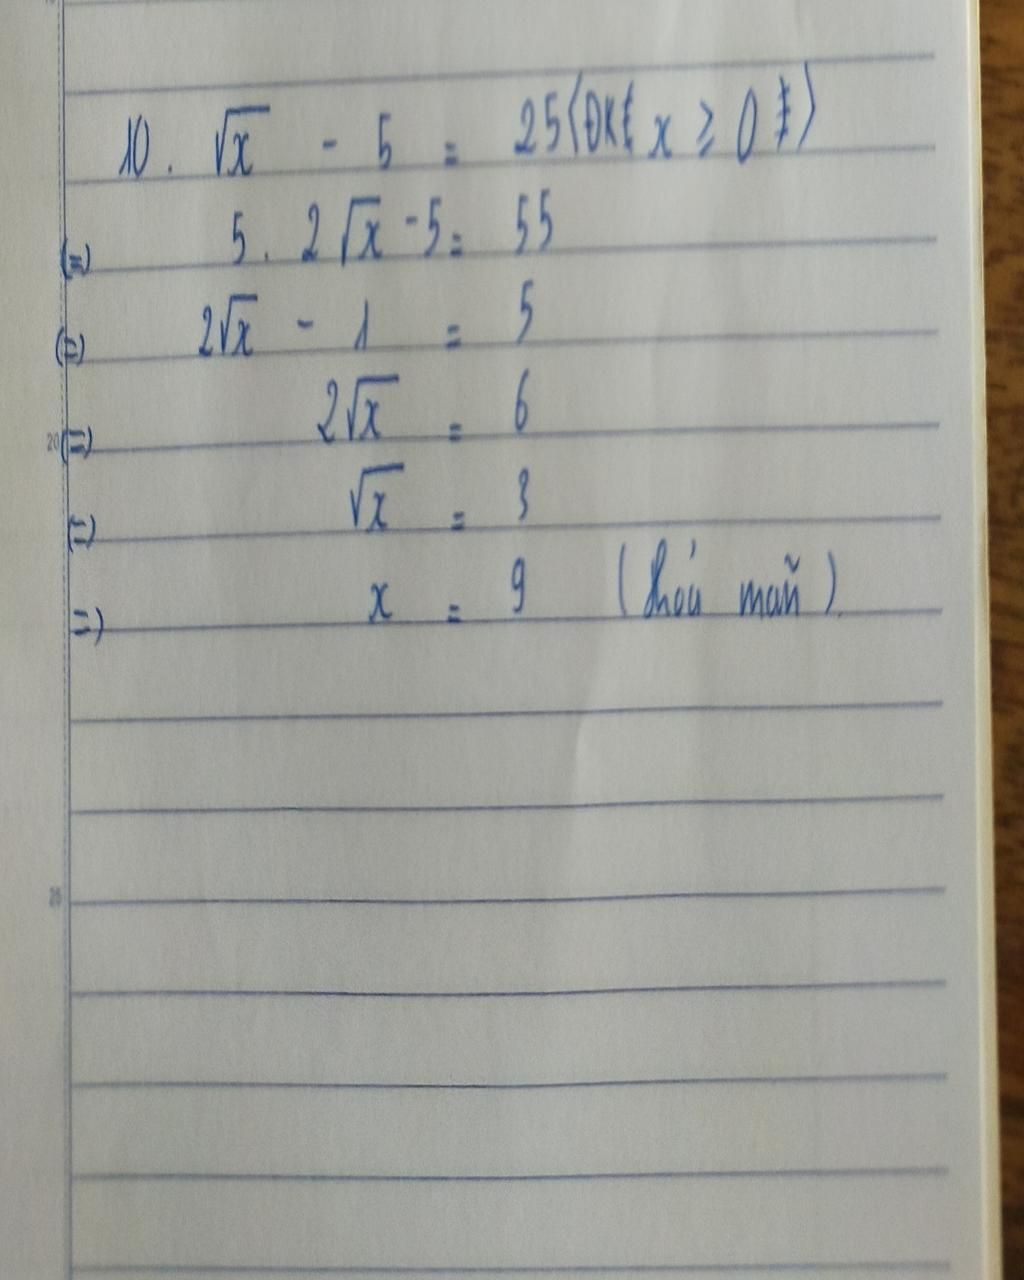 10. √x - 5 = 25 (ĐKĐ x ≥ 0)
(=) 5. 2√x - 5 = 55
(=) 2√x - 1 = 5
20 (=) 2√x = 6
(=) √x = 3
=) x = 9 (thoả mãn).
25